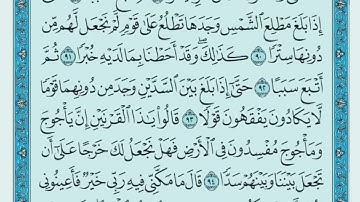 إِذَا بَلَغَ مَطْلِعَ ٱلشَّمْسِ وَجَدَهَا تَطْلُعُ عَلَىٰ قَوْمٍ لَّمْ نَجْعَل لَّهُم مِّن
دُونِهَا سِتْرًا ٩٠ كَذَٰلِكَۖ وَقَدْ أَحَطْنَا بِمَا لَدَيْهِ خُبْرًا ٩١ ثُمَّ
أَتْبَعَ سَبَبًا ٩٢ حَتَّىٰٓ إِذَا بَلَغَ بَيْنَ ٱلسَّدَّيْنِ وَجَدَ مِن دُونِهِمَا قَوْمًا
لَّا يَكَادُونَ يَفْقَهُونَ قَوْلًا ٩٣ قَالُوا۟ يَٰذَا ٱلْقَرْنَيْنِ إِنَّ يَأْجُوجَ
وَمَأْجُوجَ مُفْسِدُونَ فِى ٱلْأَرْضِ فَهَلْ نَجْعَلُ لَكَ خَرْجًا عَلَىٰٓ أَن
تَجْعَلَ بَيْنَنَا وَبَيْنَهُمْ سَدًّا ٩٤ قَالَ مَا مَكَّنِّى فِيهِ رَبِّى خَيْرٌ فَأَعِينُونِى